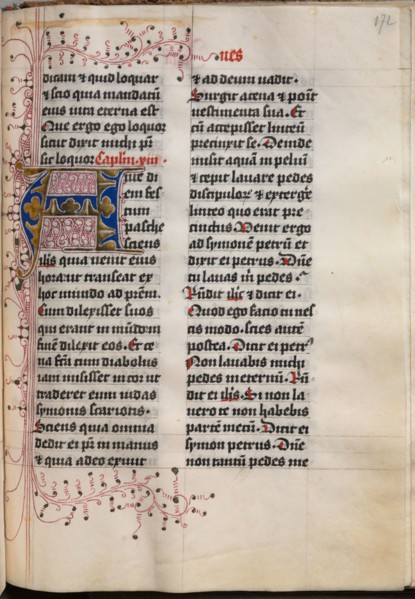 nes
172
dicam ⁊ quid loquar
⁊ scio quia mandatū
eius vita eterna est
Que ergo ego loquor
sicut dixit michi pr̄
sic loquor Caplm̄ xiii ·
Ante di
em fes
tum
pasche
sciens
ih̄s quia venit eius
hora ut transeat ex
hoc mundo ad pr̄em.
Cum dilexisset suos
qui erant in mūdo in
finē dilexit eos. Et ce
na fc̄ta cum diabolus
iam misisset in cor ut
traderet eum iudas
symonis scariotis.
Sciens quia omnia
dedit ei pr̄ in manus
⁊ quia a deo exiuit
⁊ ad deum vadit.
Surgit a cena ⁊ ponit
vestimenta sua. Et
cū accepisset linteū
precinxit se. Deinde
misit aquā in peluī
⁊ cepit lavare pedes
discipuloꝝ ⁊ exterge
linteo quo erat pre
cinctus. Venit ergo
ad symonē petrū et
dixit ei petrus. Dn̄e
tu lavas m̄ pedes.
Rn̄dit ih̄s ⁊ dicit ei.
Quod ego facio tu nes
cis modo. scies autē
postea. Dicit ei petr᷒
Non lavabis michi
pedes in eternū. Rn̄
dit ei ih̄s. Si non la
vero te non habebis
partē mecū. Dicit ei
symon petrus. Dn̄e
non tantū pedes me